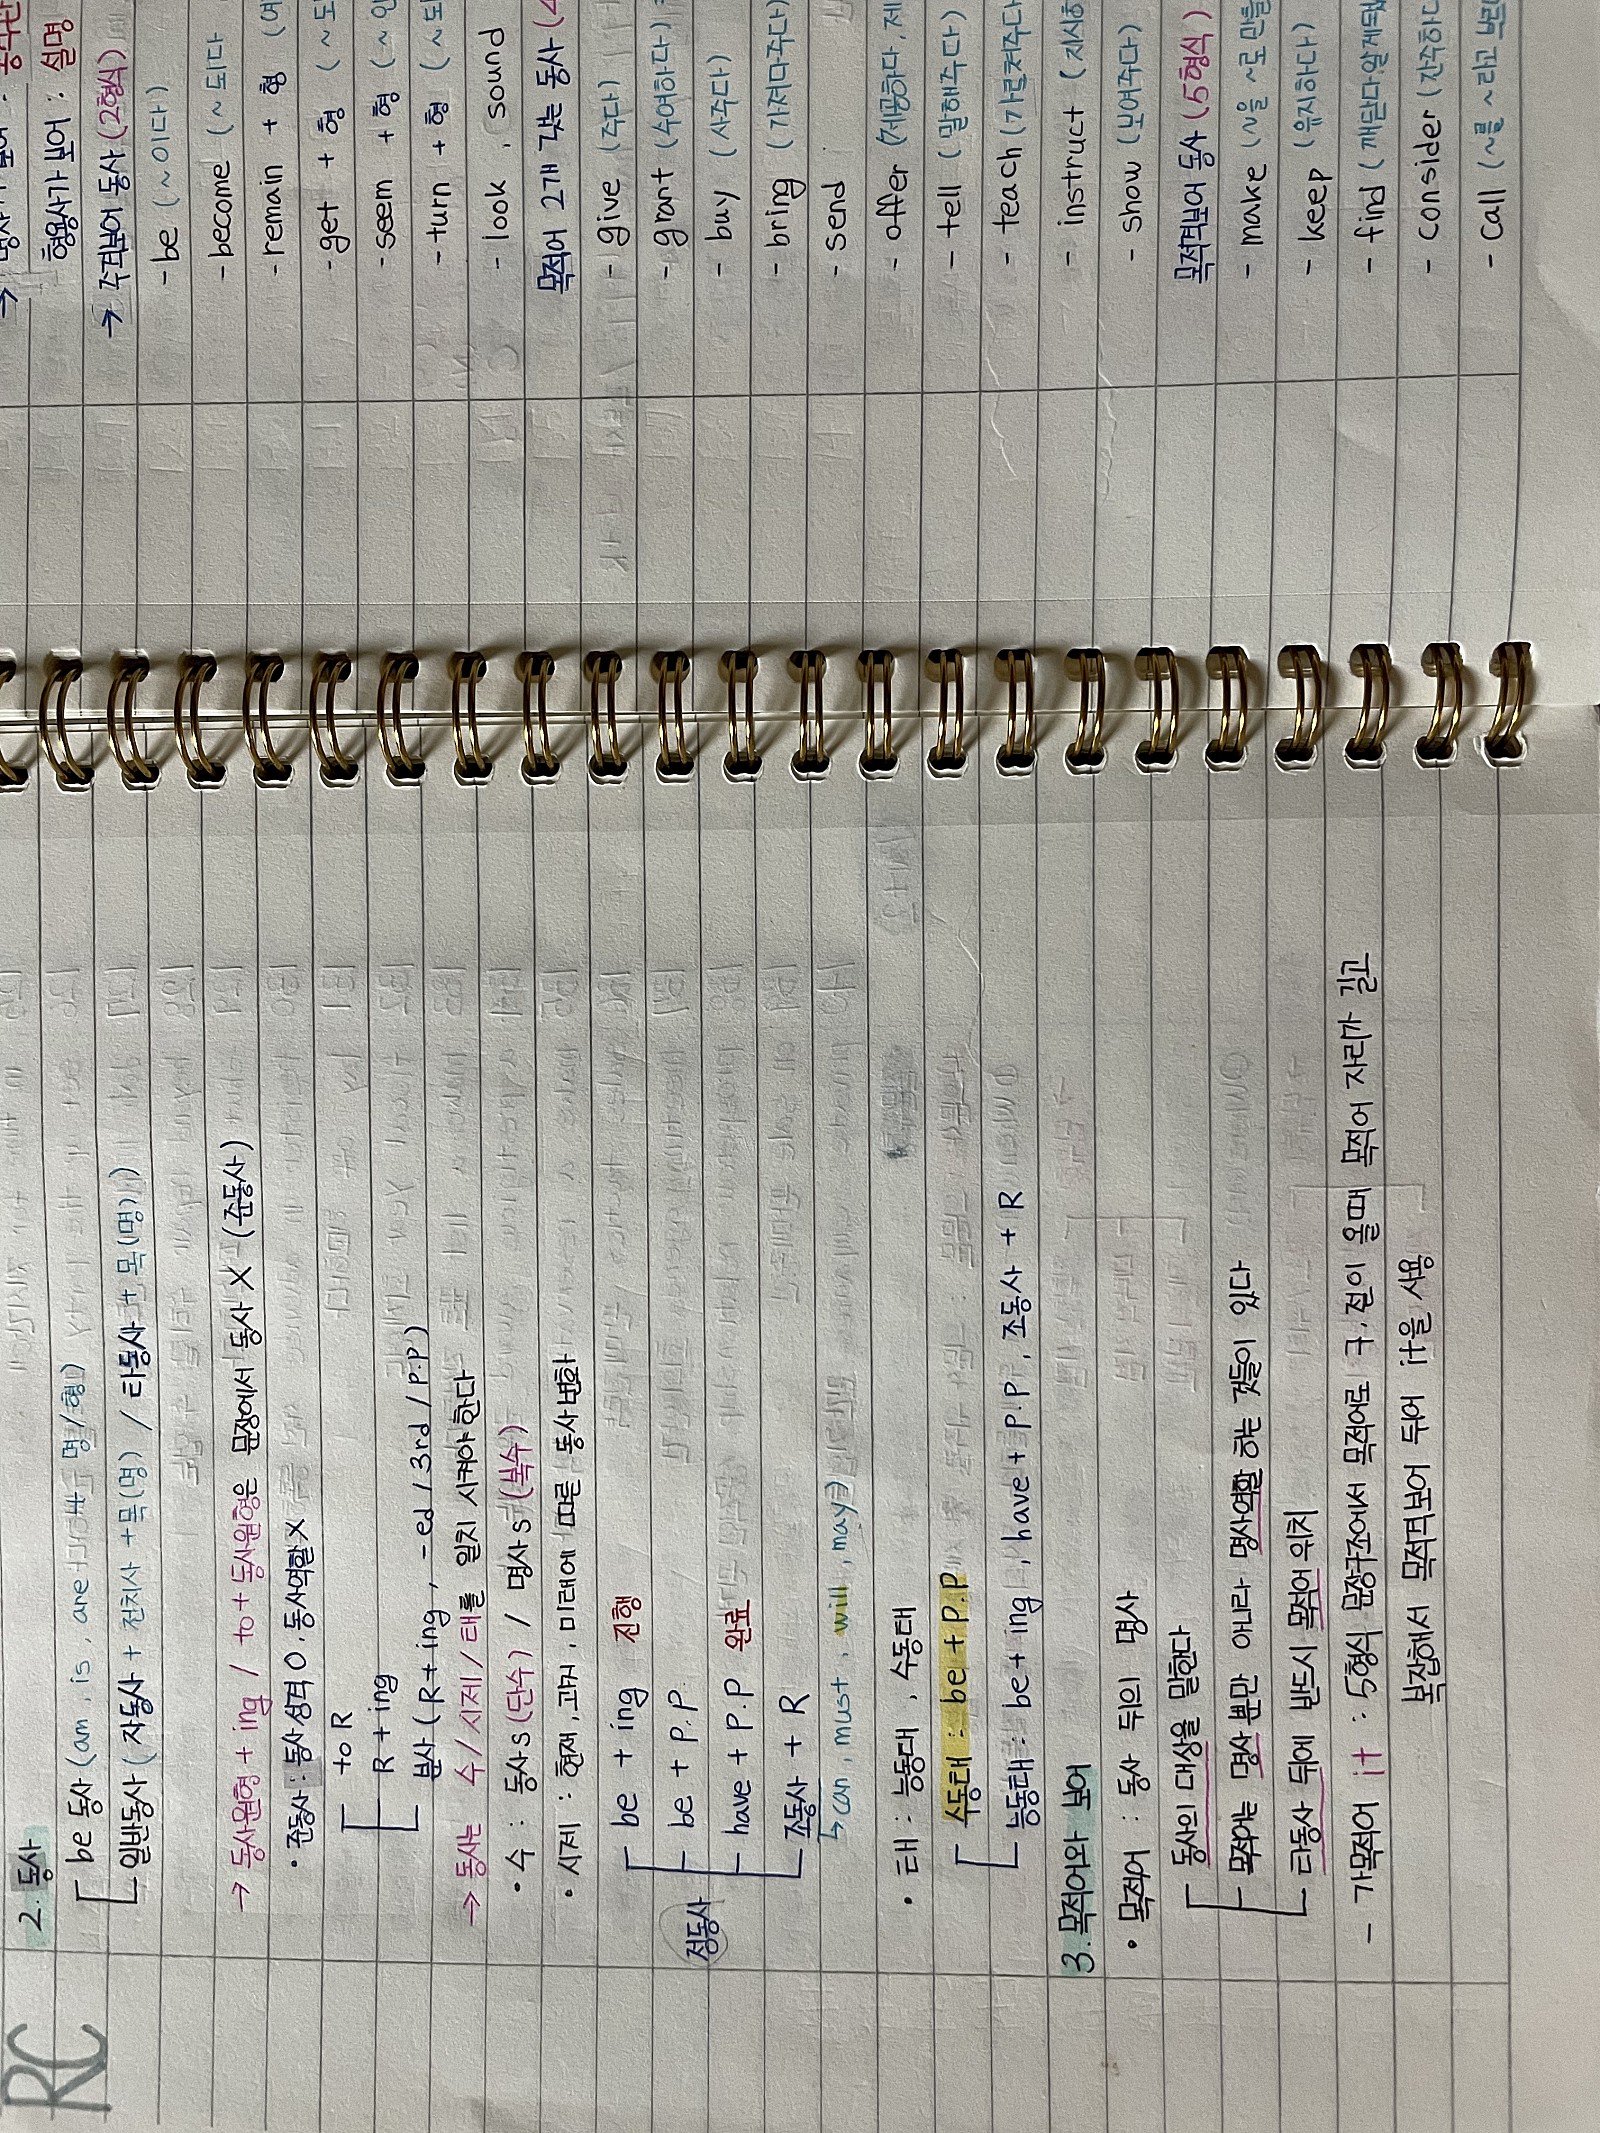 RC
2. 동사
be 동사 (am, is, are + 명/형)
일반동사 (자동사 + 전치사 + 목(명) / 타동사 + 목(명))
→ 동사원형 + ing / to + 동사원형은 문장에서 동사 X (준동사)
• 준동사 : 동사 성격 O, 동사역할 X
to R
R + ing
분사 (R + ing, -ed / 3rd / p.p)
→ 동사는 수/시제/태를 일치 시켜야 한다
• 수 : 동사s (단수) / 명사s (복수)
• 시제 : 현재, 과거, 미래에 따른 동사변화
정동사
be + ing 진행
be + p.p
have + p.p 완료
조동사 + R
↳ can, must, will, may
• 태 : 능동태, 수동태
수동태 : be + p.p
능동태 : be + ing, have + p.p, 조동사 + R
3. 목적어와 보어
• 목적어 : 동사 뒤의 명사
동사의 대상을 말한다
목적어는 명사 뿐만 아니라 명사역할 하는 것들이 있다
타동사 뒤에 반드시 목적어 위치
- 가목적어 it : 5형식 문장구조에서 목적어로 구, 절이 올때 목적어 자리가 길고
복잡해서 목적격보어 뒤어 it을 사용
형용사가 보어 : 설명
→ 주격보어 동사 (2형식)
- be (~이다)
- become (~되다
- remain + 형
- get + 형 (~되
- seem + 형 (~인
- turn + 형 (~되
- look, sound
목적어 2개 갖는 동사
- give (주다)
- grant (수여하다)
- buy (사주다)
- bring (가져다주다)
- send
- offer (제공하다, 제
- tell (말해주다)
- teach (가르쳐주다
- instruct (지시하
- show (보여주다)
목적격보어 동사 (5형식)
- make (~을 ~로 만들
- keep (유지하다)
- find (깨닫다, 알게되
- consider (간주하다
- call (~를 ~라고 부르